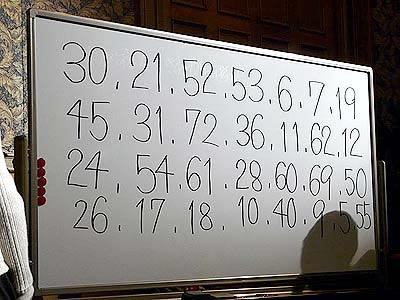 30.21.52.53.6.7.19
45.31.72.36.11.62.12
24.54.61.28.60.69.50
26.17.18.10.40.9.5.55